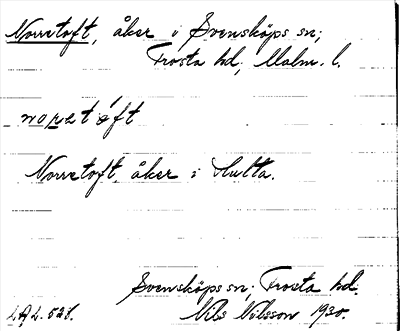 Norretoft, åker i Svensköps sn,
Frosta hd, Malm. l.
Norretoft, åker i Hulta.
Svensköps sn, Frosta hd.
L.A.L. 521. Nils Nilsson 1930.